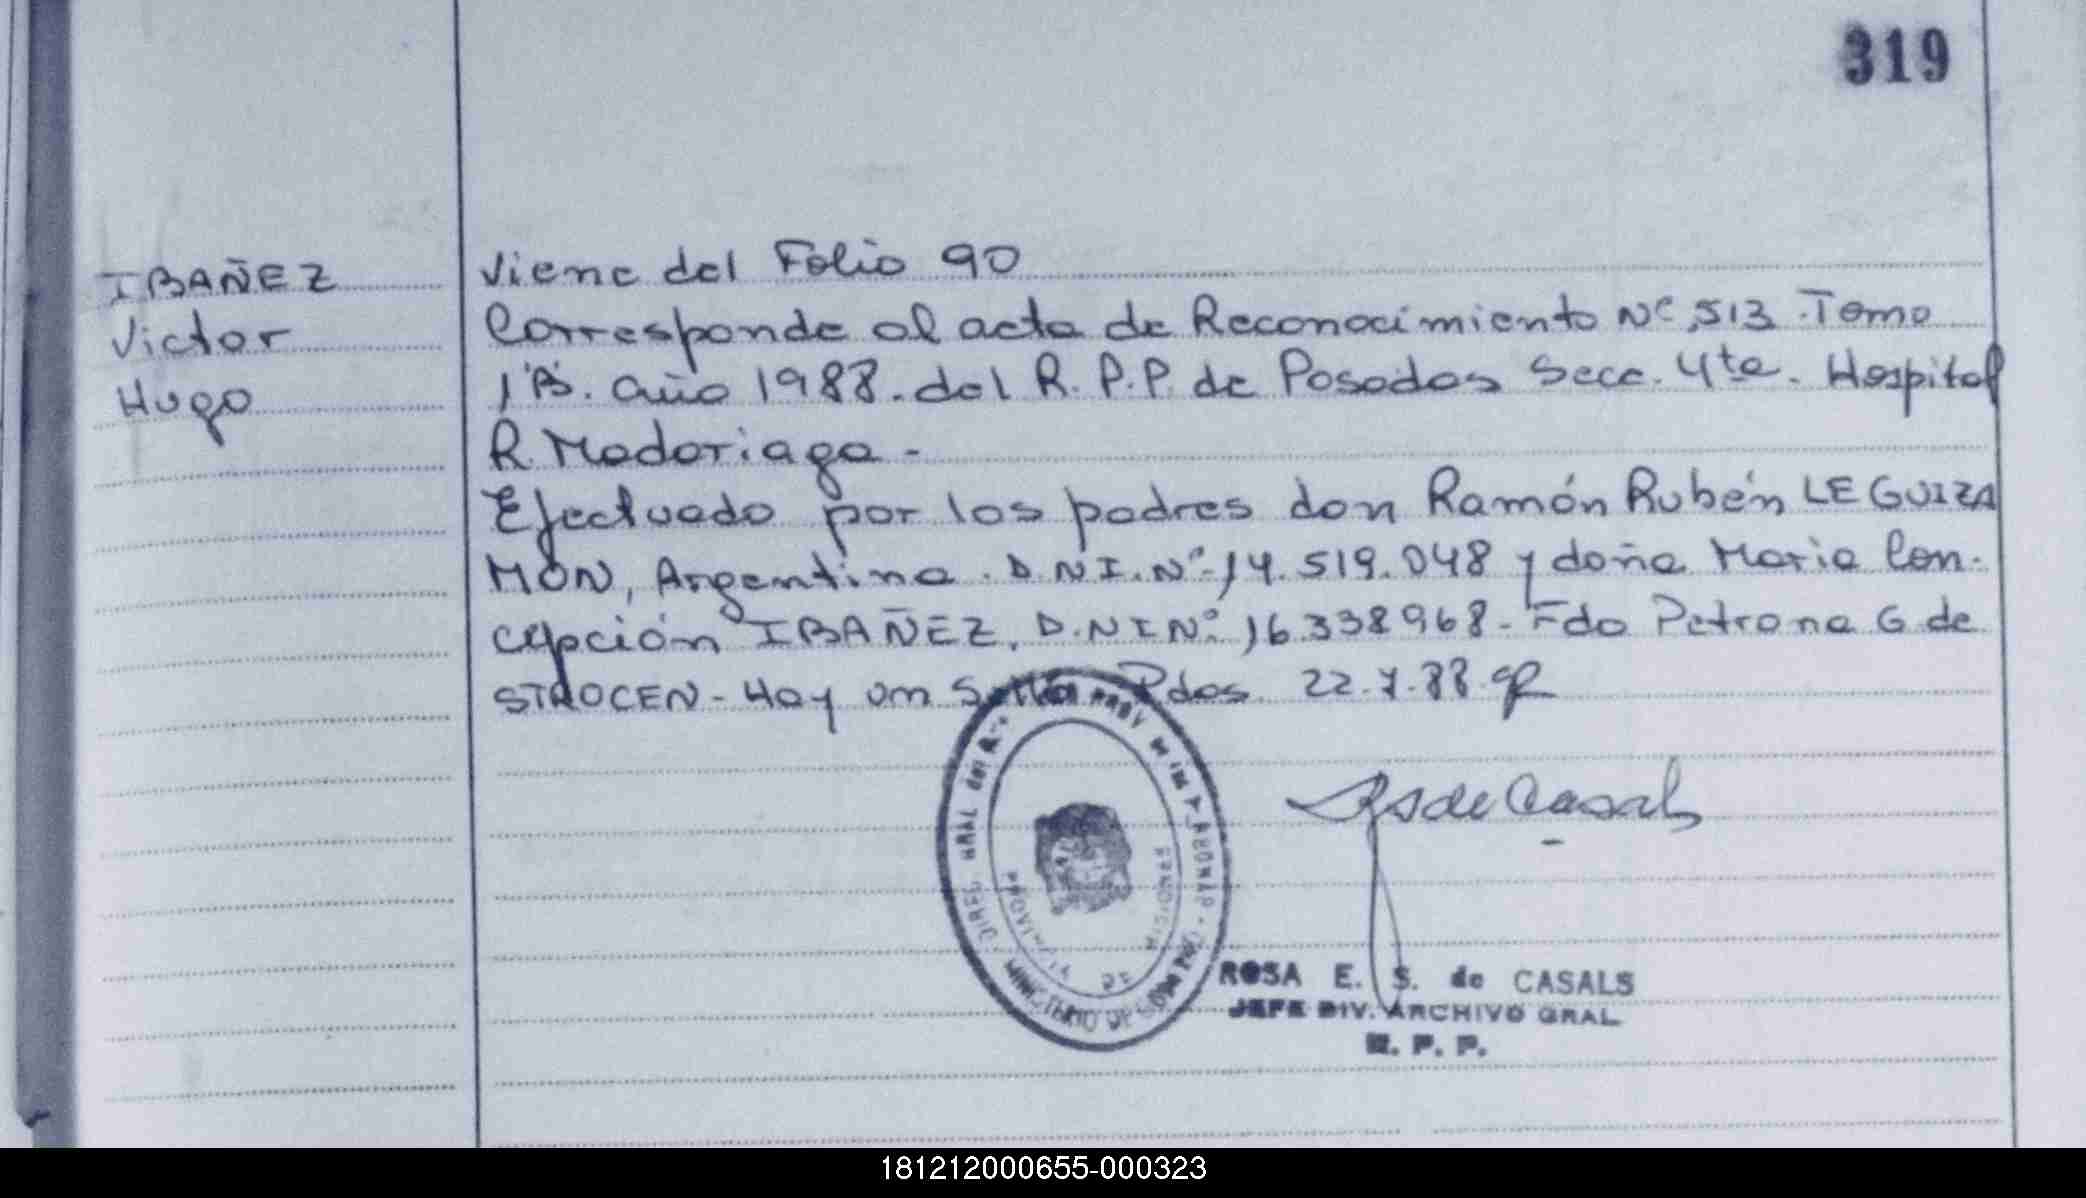 319
IBAÑEZ
Victor
Hugo
Viene del Folio 90
Corresponde al acta de Reconocimiento Nº 513. Tomo
1"B". año 1988. del R.P.P. de Posadas Secc. 4ta. Hospital
R. Madariaga -
Efectuado por los padres don Ramón Rubén LEGUIZA
MÓN, Argentino. D.N.I. Nº 14.519.048 y doña Maria Con-
cepción IBAÑEZ. D.N.I Nº 16.338968 - Fdo Petrona G de
STROCEN - Hay un Sello. Pdas. 22.7.88.
Rs de Casals
DIREC. GRAL del
PROV
MINISTERIO DE
PROVINCIA DE MISIONES
ROSA E. S. de CASALS
JEFE DIV. ARCHIVO GRAL
R. P. P.
181212000655-000323